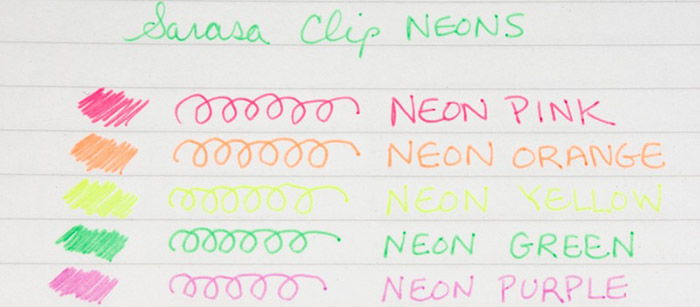 Sarasa Clip NEONS
NEON PINK
NEON ORANGE
NEON YELLOW
NEON GREEN
NEON PURPLE